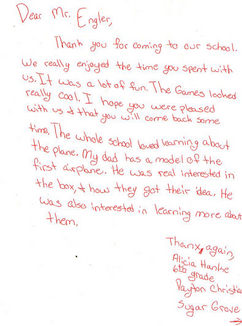 Dear Mr. Engler,
Thank you for coming to our school.
We really enjoyed the time you spent with
us. It was a lot of fun. The Games looked
really cool. I hope you were pleased
with us & that you will come back some
time. The whole school loved learning about
the plane. My dad has a model of the
first airplane. He was real interested in
the box, & how they got their idea. He
was also interested in learning more about
them.
Thanx, again,
Alicia Hanke
6th grade
Payton Christia
Sugar Grove
→